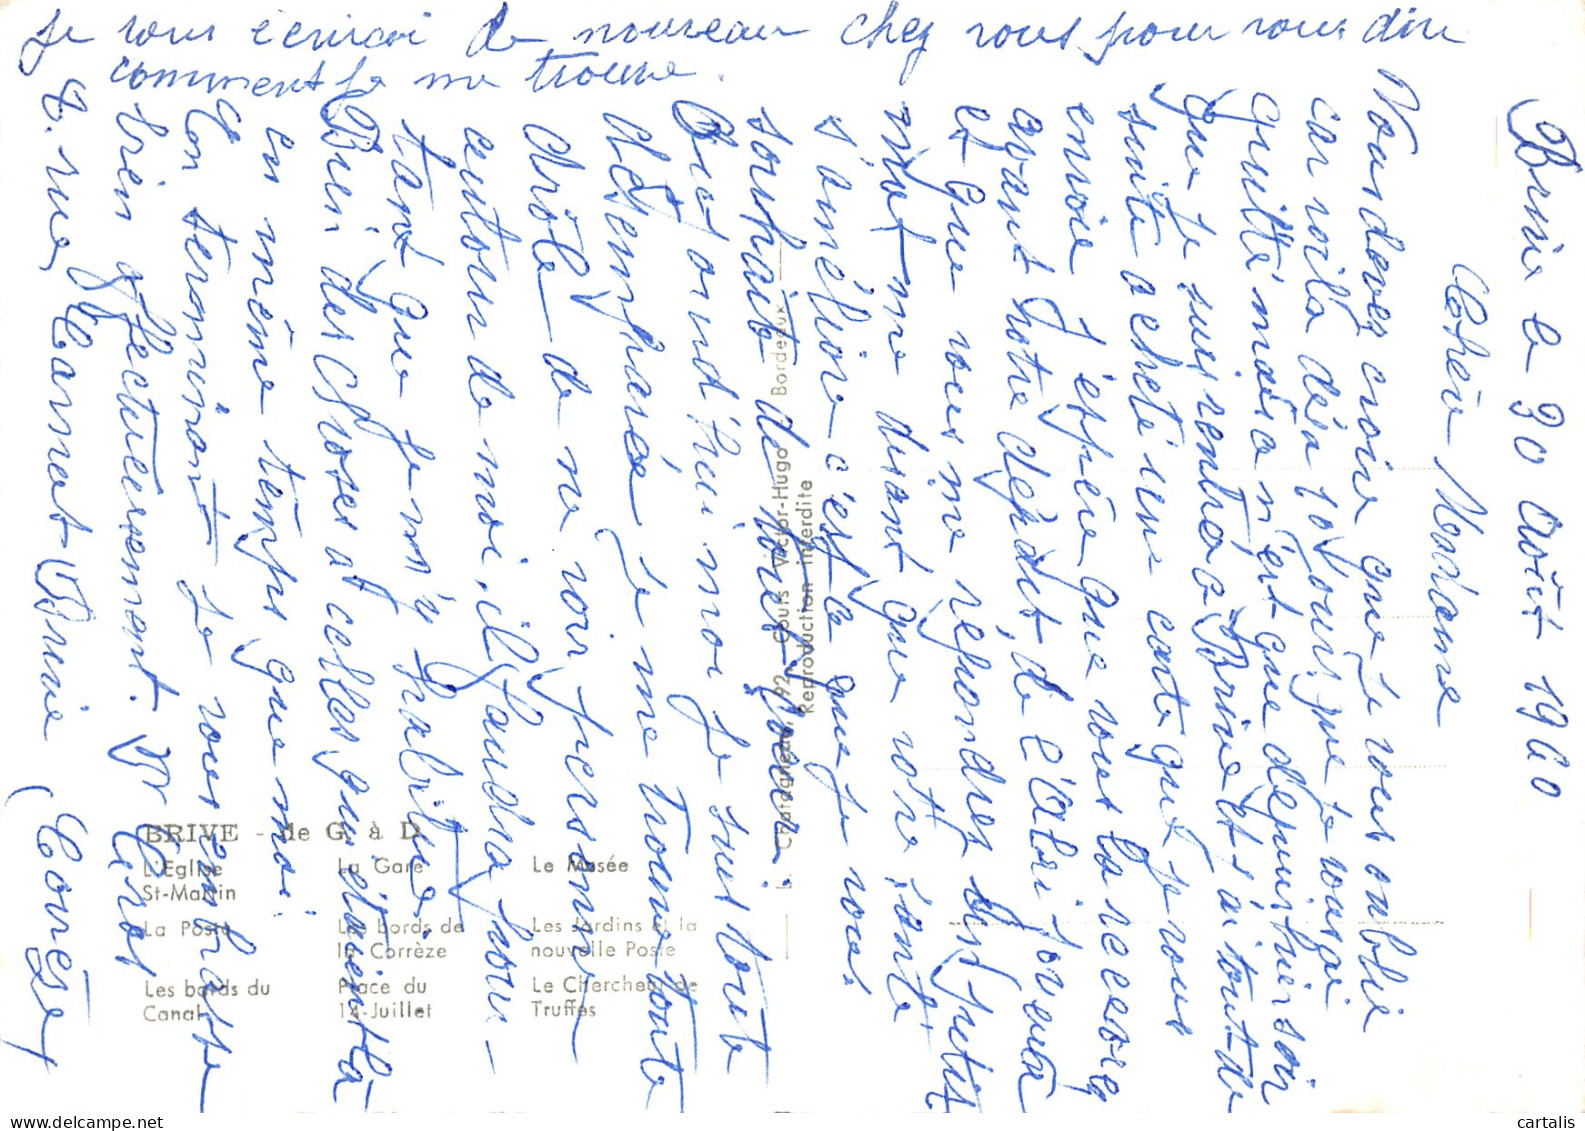 Brive le 30 Août 1960
Chère Madame
Vous devez croire que je vous oublie
car voilà déja 10 jours que je vous ai
quitté mais ce n'est que depuis hier soir
que je suis rentré a Brive et j'ai tout de
suite acheté une carte que je vous
envoie j'espère que vous la recevrez
avant votre départ de l'Abri
et que vous me repondrez un petit
mot me disant que votre santé
s'améliore c'est ce que je vous
souhaite de tout cœur.
Aujourd'hui moi je suis toute
désemparée je me trouve toute
drôle de ne voir personne
autour de moi, il faudra pour-
tant que je m'y habitue.
Bien des choses a celles qui étaient là
en même temps que moi.
En terminant je vous embrasse
bien affectueusement. M Cirot
8. rue Carnot Brive (Corrèze)
je vous écrirai de nouveau chez vous pour vous dire
comment je me trouve.
BRIVE - de G. à D.
L'Eglise St-Martin
La Gare
Le Musée
La Poste
Les bords de la Corrèze
Les Jardins et la nouvelle Poste
Les bords du Canal
Place du 14-Juillet
Le Chercheur de Truffes
L. Chatagneau, 92, Cours Victor-Hugo Bordeaux
Reproduction interdite
cartalis